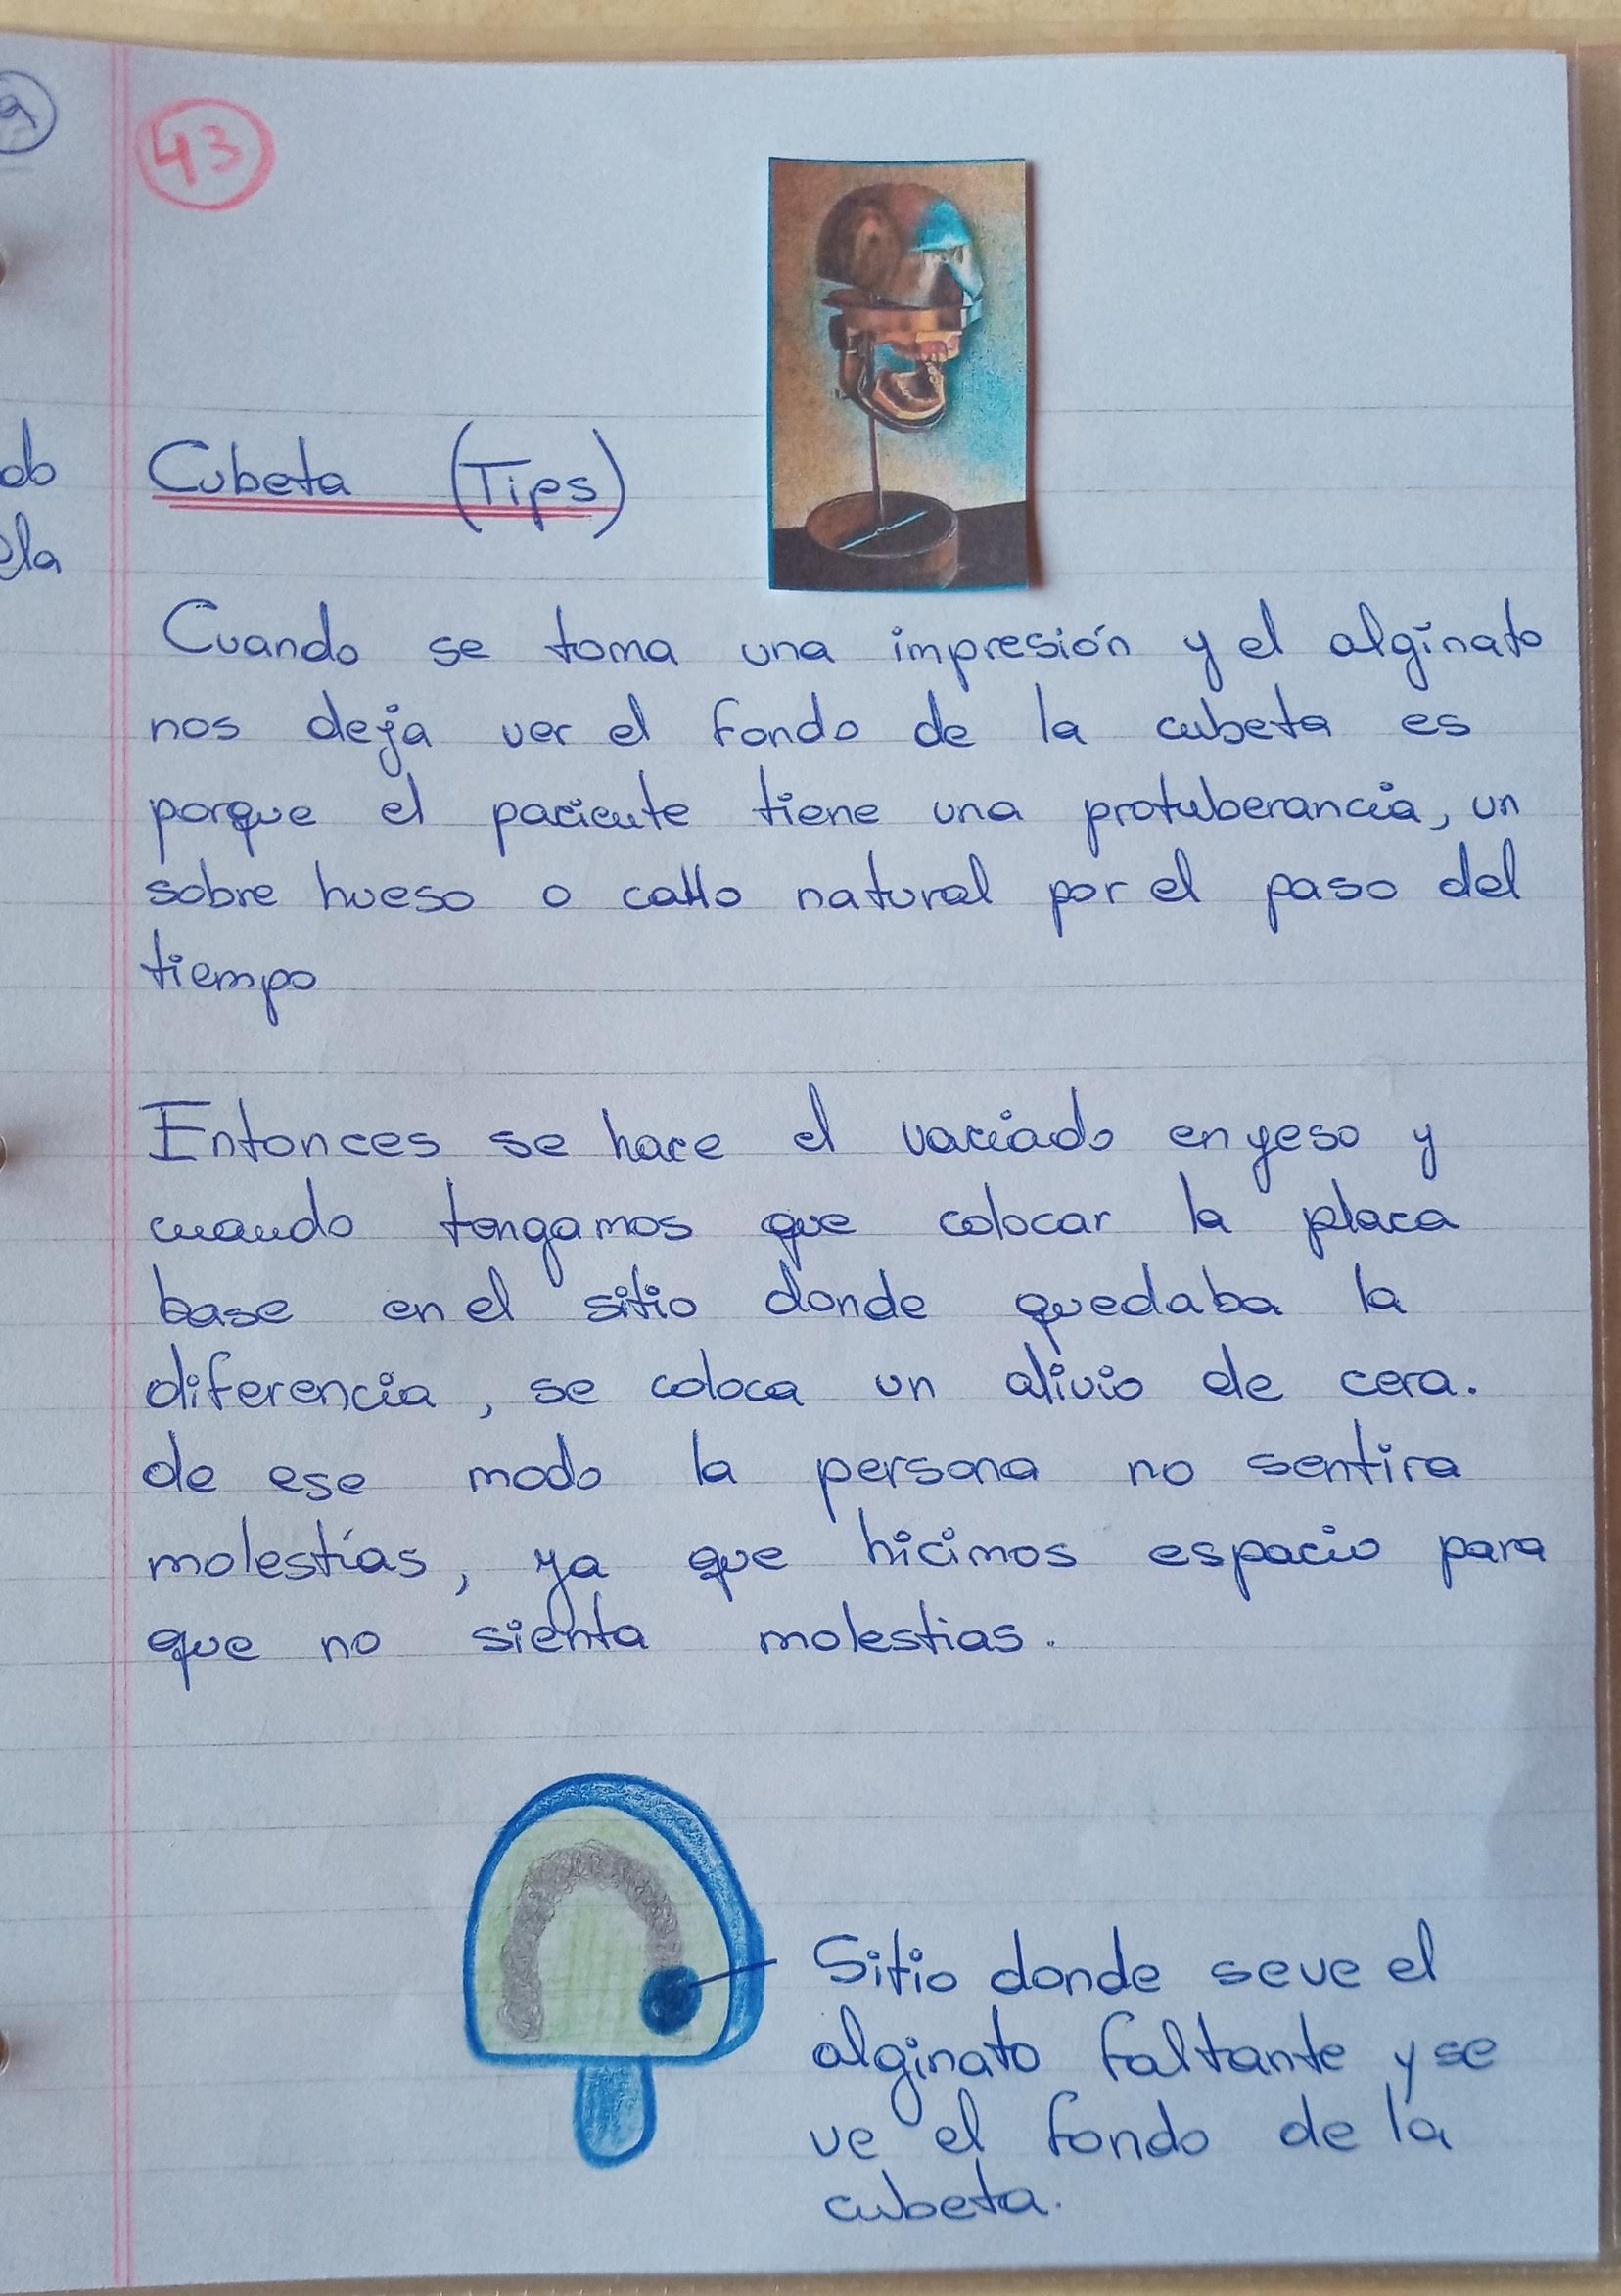 43
Cubeta (Tips)
Cuando se toma una impresión y el alginato
nos deja ver el fondo de la cubeta es
porque el paciente tiene una protuberancia, un
sobre hueso o callo natural por el paso del
tiempo
Entonces se hace el vaciado en yeso y
cuando tengamos que colocar la placa
base en el sitio donde quedaba la
diferencia, se coloca un alivio de cera.
de ese modo la persona no sentira
molestías, ya que hicimos espacio para
que no sienta molestias.
Sitio donde se ve el
alginato faltante y se
ve el fondo de la
cubeta.